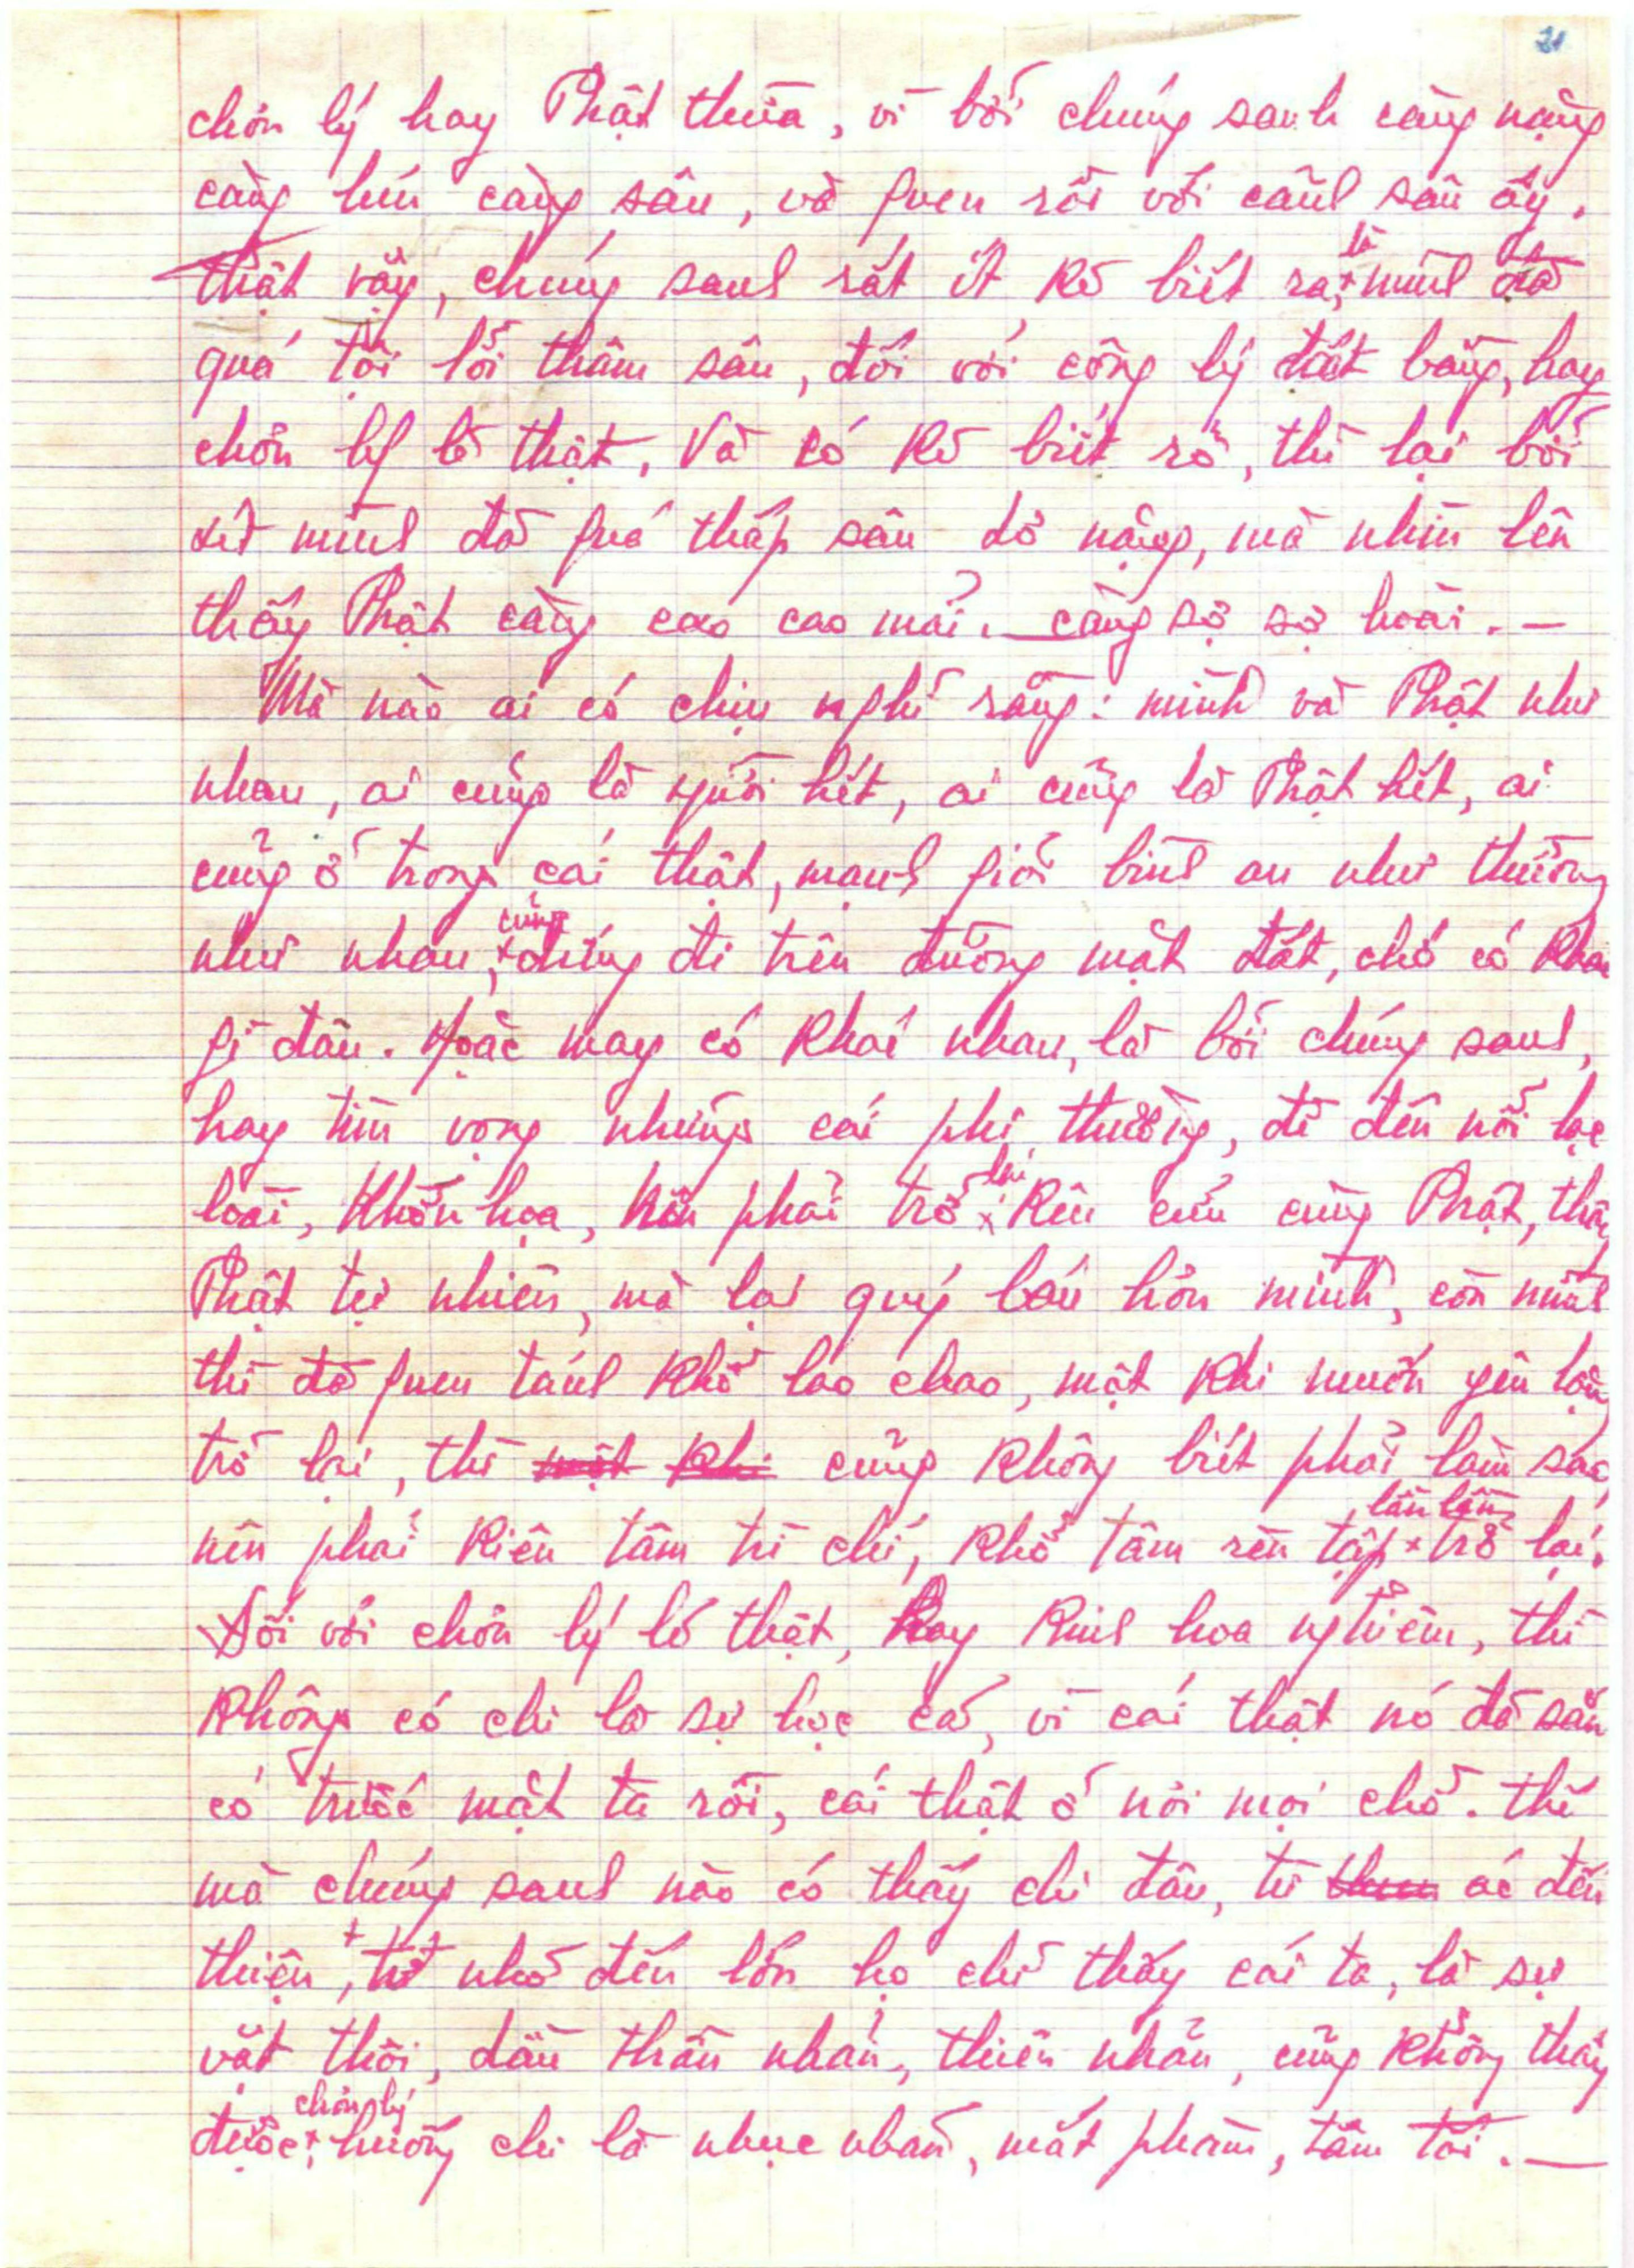 21
chơn lý hay Phật thừa, vì bởi chúng sanh càng nặng
càng lún càng sâu, và quen rồi với cảnh sâu ấy.
thật vậy, chúng sanh rất ít kẻ biết ra, là mình đã
quá tội lỗi thâm sâu, đối với công lý đất bằng, hay
chơn lý lẽ thật, Và có kẻ biết rõ, thì lại bởi
xét mình đã quá thấp sâu dở nặng, mà nhìn lên
thấy Phật càng cao cao mãi. càng sợ sợ hoài. —
Mà nào ai có chịu nghĩ rằng: mình và Phật như
nhau, ai cũng là người hết, ai cũng là Phật hết, ai
cũng ở trong cái thật, mạnh giỏi bình an như thường
như nhau, cũng đứng đi trên đường mặt đất, chớ có khác
gì đâu. Hoặc may có khác nhau, là bởi chúng sanh,
hay tìm vọng những cái phi thường, đi đến nỗi lạc
loài, khổn họa, nên phải trở lại kêu cứu cùng Phật, thấy
Phật tự nhiên, mà lại quý báu hơn mình, còn mình
thì đã quen tánh khổ lao chao, một khi muốn yên lặng
trở lại, thì một khi cũng không biết phải làm sao,
nên phải kiên tâm trì chí, khổ tâm rèn tập lần lần trở lại.
Đối với chơn lý lẽ thật, hay kinh hoa nghiêm, thì
không có chi là sự học cả, vì cái thật nó đã sẵn
có trước mặt ta rồi, cái thật ở nơi mọi chỗ. thế
mà chúng sanh nào có thấy chi đâu, từ ác đến
thiện, từ nhỏ đến lớn họ chỉ thấy cái ta, là sự
vật thôi, dầu thần nhãn, thiên nhãn, cũng không thấy
được chơn lý, huống chi là nhục nhãn, mắt phàm, tâm tối. —